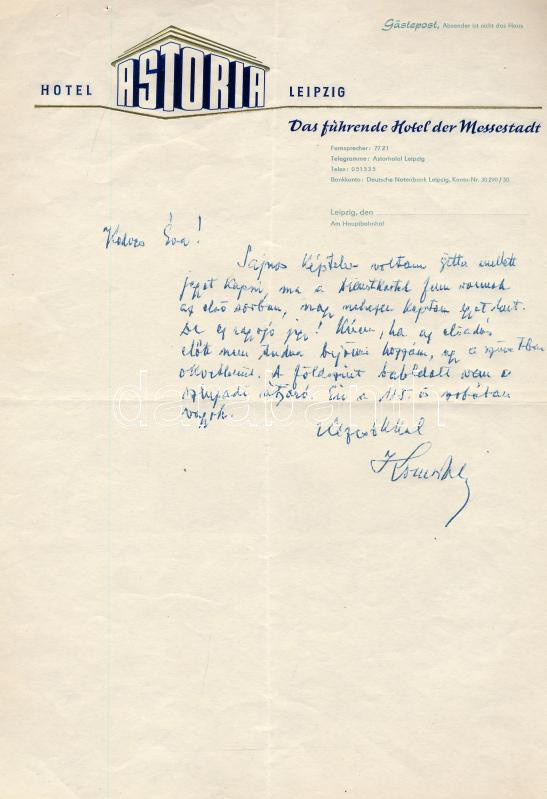 Gästepost, Absender ist nicht das Haus
HOTEL ASTORIA LEIPZIG
Das führende Hotel der Messestadt
Fernsprecher: 7721
Telegramme: Astorhotel Leipzig
Telex: 051535
Bankkonto: Deutsche Notenbank Leipzig, Konto-Nr. 30290/50
Leipzig, den
Am Hauptbahnhof
Kedves Éva!
Sajnos képtelen voltam Gitta mellett
jegyet kapni, ma a fenn vannak
az első sorban, nagy nehezen kaptam egyet
De ez nagyon jó jegy! Kérem, ha az előadás
előtt nem tudna bejönni hozzám, úgy a szünetben
A földszint baloldali van a
színpadi átjáró. Én a 115 ös szobában
vagyok.
Kézcsókkal